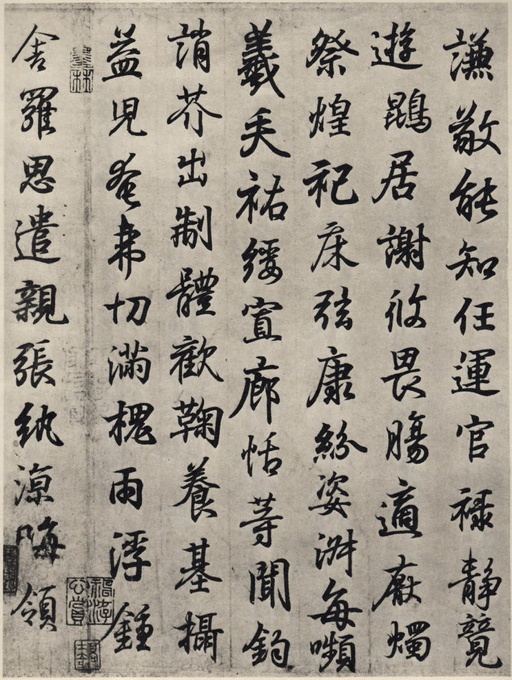 謙敬能知任運官祿靜竟
遊鵾居謝攸畏腸適厭燭
祭煌祀床弦康紛姿淵每嚬
羲矢祐綏宣廊恬等聞鈞
誚芥出制體歡鞠養基攝
益兒奄弗切滿槐雨浮鍾
舍羅思遣親張紈涼晦領
墨林